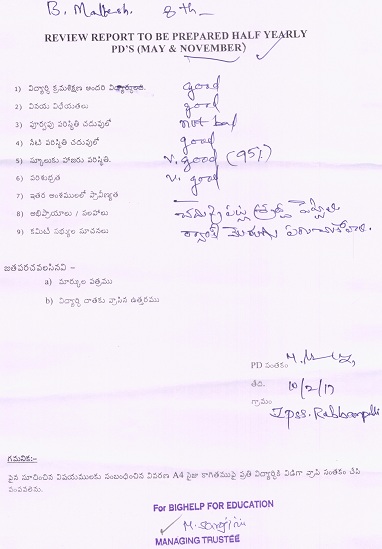 B. Mallesh. 8th
REVIEW REPORT TO BE PREPARED HALF YEARLY
PD'S (MAY & NOVEMBER)
1) విద్యార్థి క్రమశిక్షణ అందరి విద్యార్థులతో. good
2) వినయ విధేయతలు good
3) పూర్వపు పరిస్థితి చదువులో not bad
4) నేటి పరిస్థితి చదువులో good
5) స్కూలుకు హాజరు పరిస్థితి. v. good (95%)
6) పరిశుభ్రత v. good
7) ఇతర అంశములలో ప్రావీణ్యత
8) అభిప్రాయాలు / సలహాలు
9) కమిటి సభ్యుల సూచనలు
జతపరచవలసినవి -
a) మార్కుల పత్రము
b) విద్యార్థి దాతకు వ్రాసిన ఉత్తరము
PD సంతకం
తేది. 10/2/17
గ్రామం
గమనిక:-
పైన సూచించిన విషయములకు సంబంధించిన వివరణ A4 సైజు కాగితముపై ప్రతి విద్యార్థికి విడిగా వ్రాసి సంతకం చేసి
పంపవలెను.
For BIGHELP FOR EDUCATION
M. Sarojini
MANAGING TRUSTEE